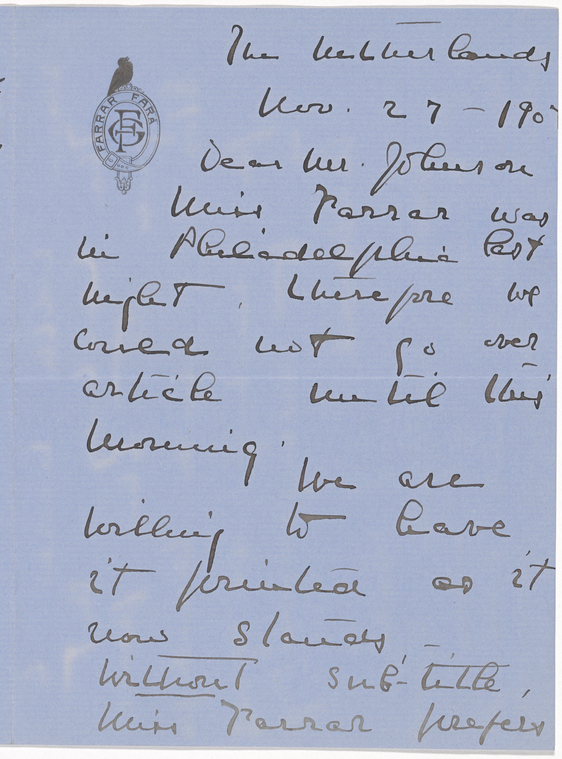 FARRAR FARA
GF
The Netherlands
Nov. 27 - 190
Dear Mr. Johnson
Miss Farrar was
in Philadelphia last
night, therefore we
could not go over
article until this
morning.
We are
willing to have
it printed as it
now stands, -
without sub-title,
Miss Farrar prefers